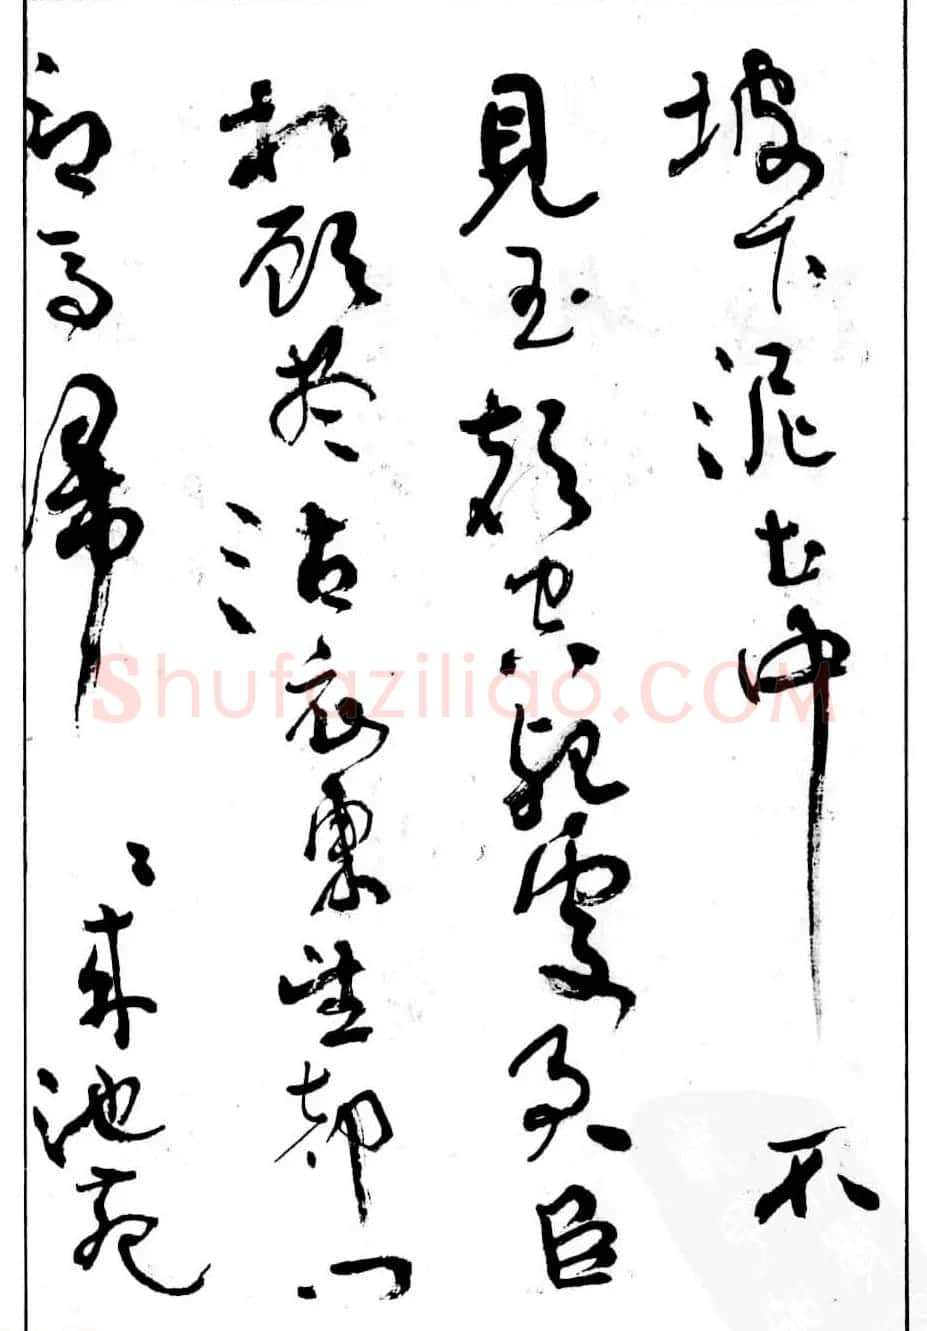 坡下泥土中不
見玉顏空死處君臣
相顧盡沾衣東望都門
信馬歸=來池苑
Shufaziliao.COM